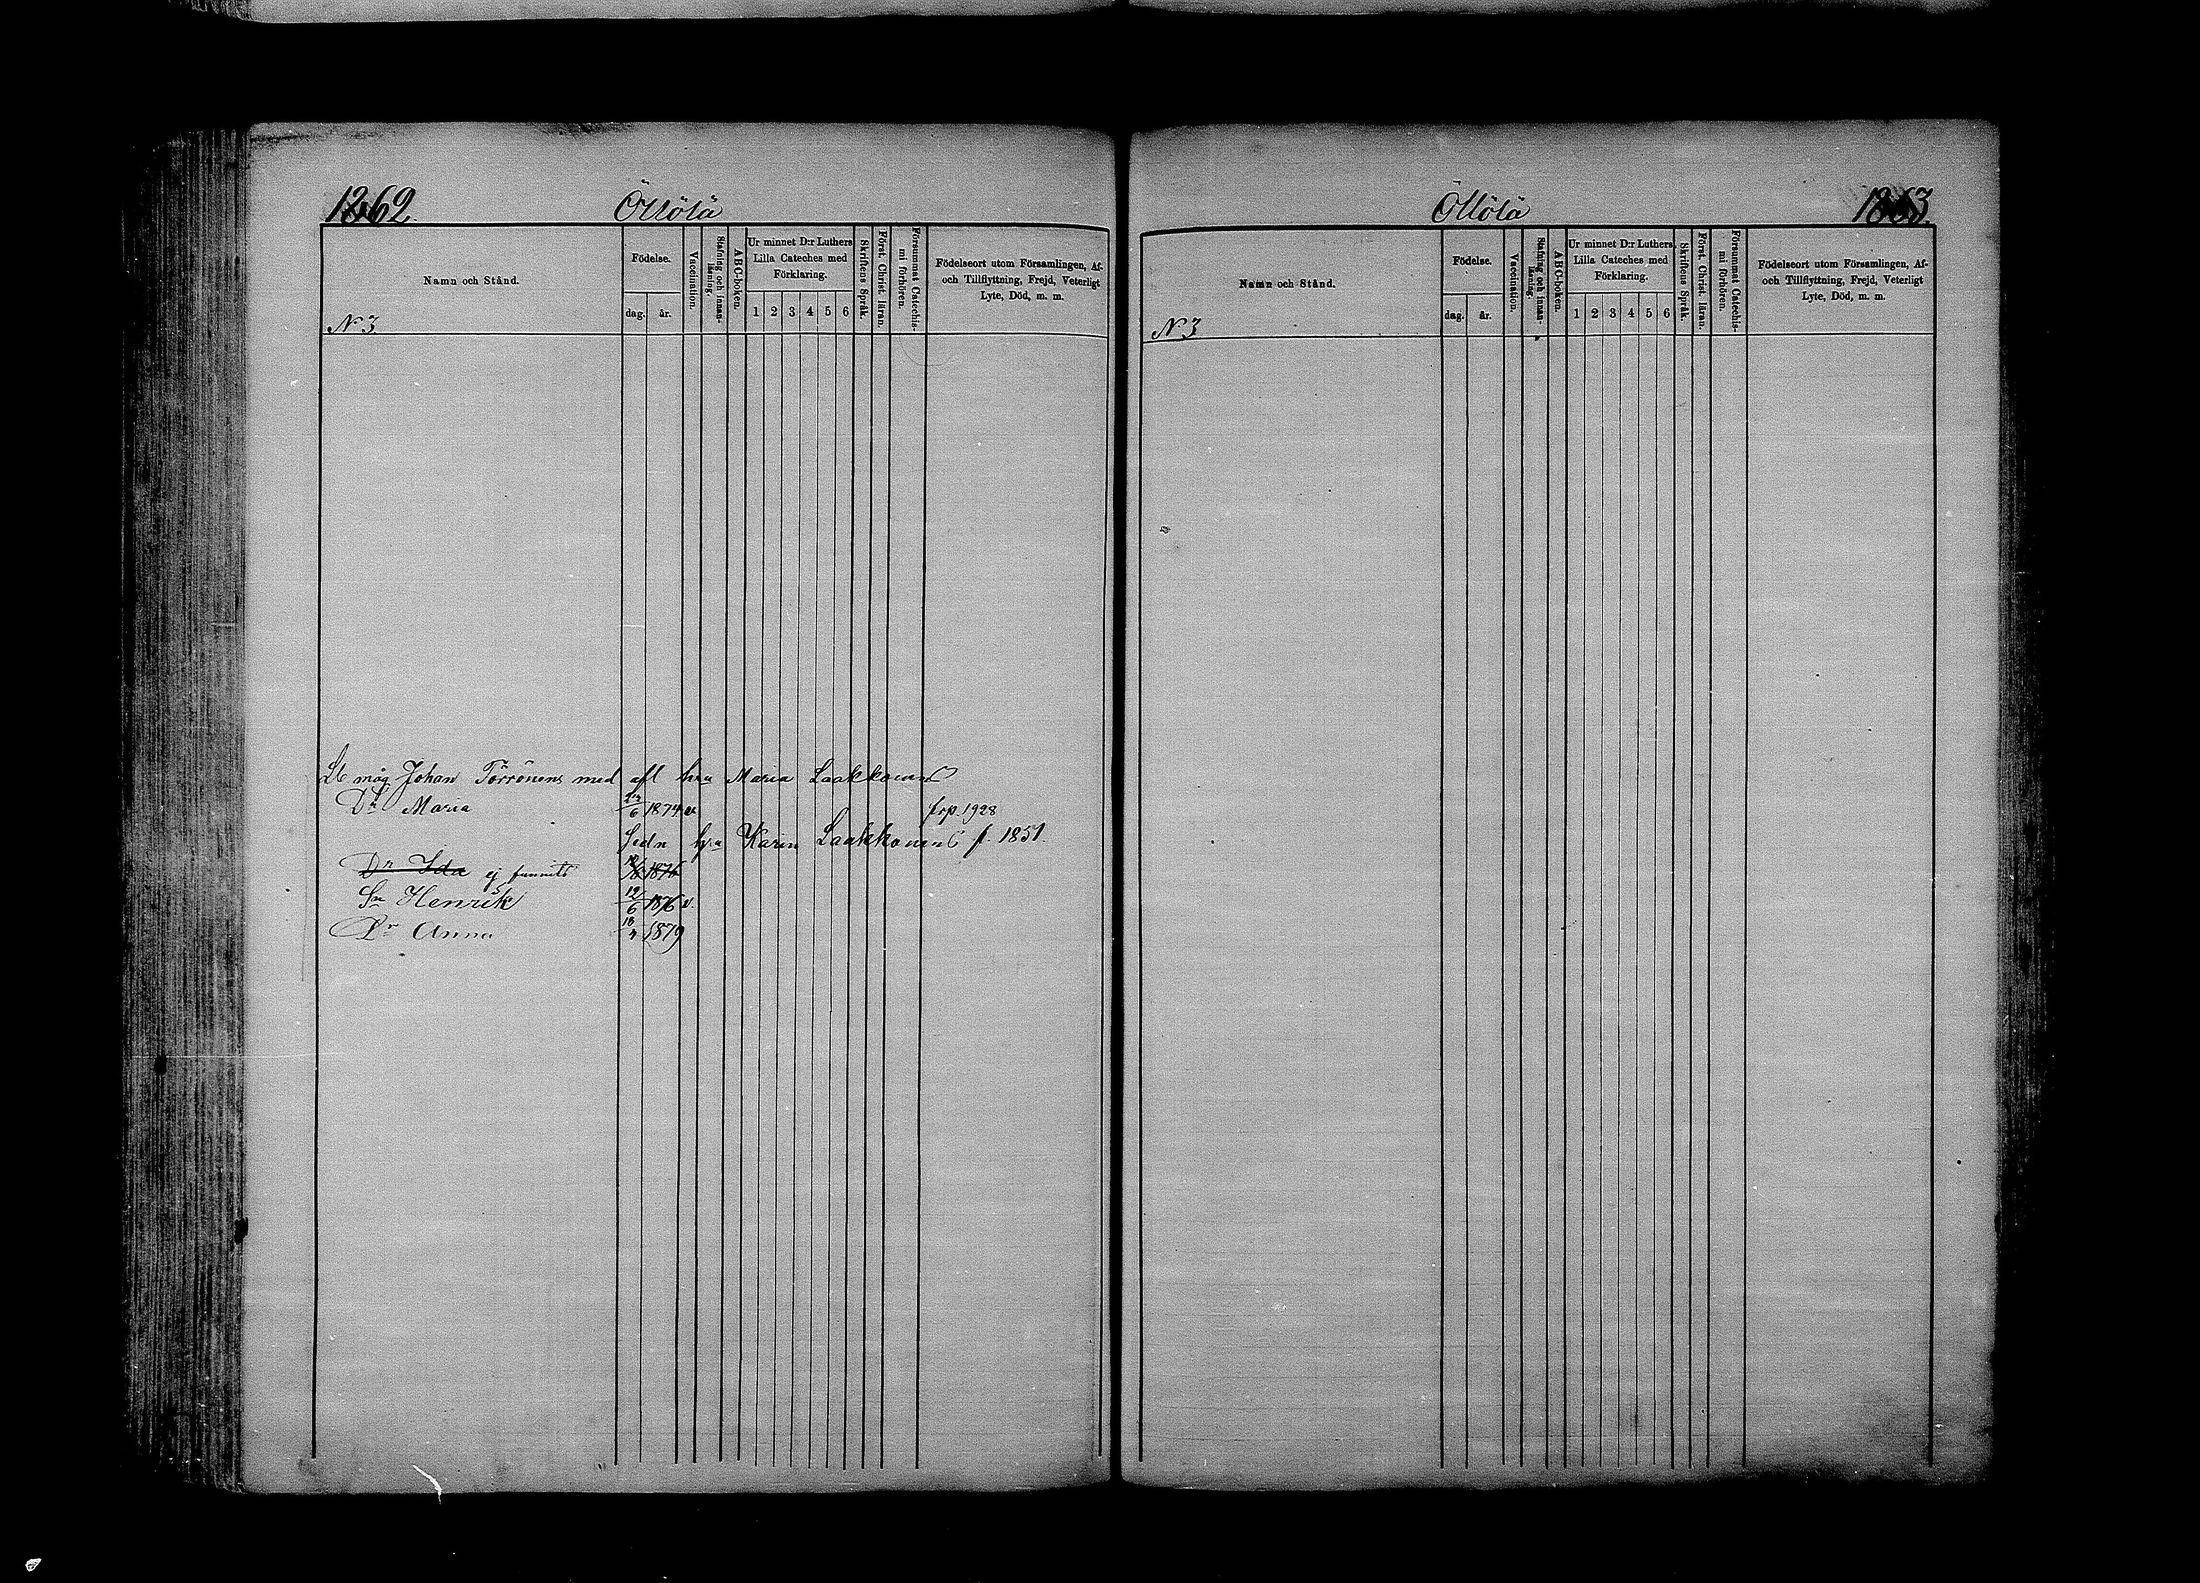 1262. Ollölä
Namn och Stånd.
Födelse.
dag. år.
Vaccination.
Stafning och innan-läsning.
ABC-boken.
Ur minnet D:r Luthers Lilla Cateches med Förklaring.
1 2 3 4 5 6
Skriftens Språk.
Först. Christ. läran.
Försummat Catechis-mi förhören.
Födelseort utom Församlingen, Af-
och Tillflyttning, Frejd, Veterligt
Lyte, Död, m. m.
N 3
måg Johan Törrönens med afl hru Maria Laakkonens
Dr Maria 6 1874 v. frp. 1928
Sedn hru Karin Laakkonens f. 1851.
Dr Ida ej funnits 1876
Sn Henrik 19/6 1876 v.
Dr Anna 18 1879
Ollölä 1263.
Namn och Stånd.
Födelse.
dag. år.
Vaccination.
Stafning och innan-läsning.
ABC-boken.
Ur minnet D:r Luthers Lilla Cateches med Förklaring.
1 2 3 4 5 6
Skriftens Språk.
Först. Christ. läran.
Försummat Catechis-mi förhören.
Födelseort utom Församlingen, Af-
och Tillflyttning, Frejd, Veterligt
Lyte, Död, m. m.
N 3